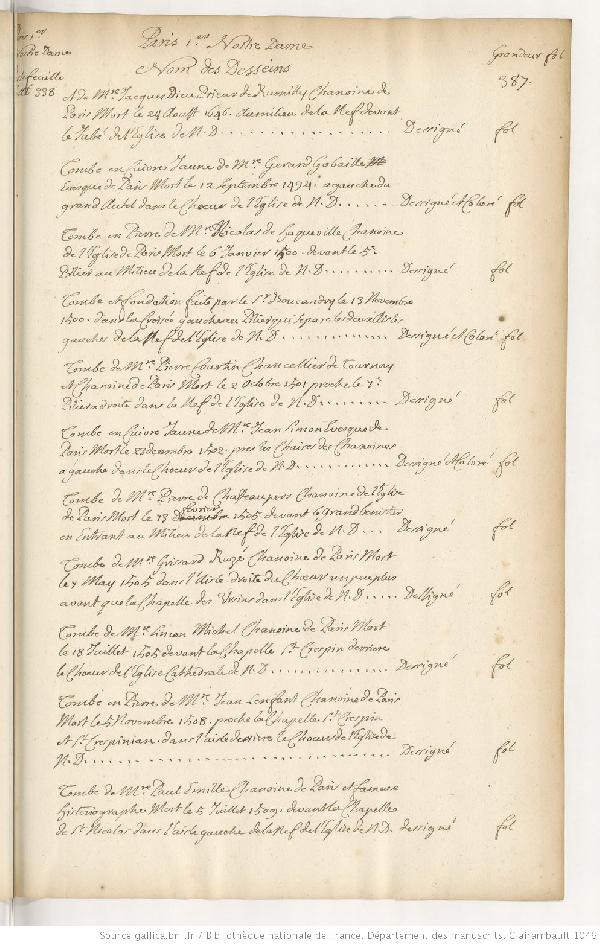 Paris 1.er Notre Dame
Nom des Desseins
Grandeur fol
387.
Notre Dame
feuille
338
A de M.re Jacques Dieu Prieur de Rumilly Chanoine de
Paris Mort le 24 Aoust 1646. au milieu de la Nef devant
le Jubé de l'Eglise de N. D. Dessigné fol
Tombe en Cuivre Jaune de M.re Gerard Gobaille
Evesque de Paris Mort le 12 Septembre 1494. a gauche du
grand Autel dans le Chœur de l'Eglise de N. D. Dessigné et Coloré fol
Tombe en Pierre de M.re Nicolas de Haqueville Chanoine
de l'Eglise de Paris Mort le 6 Janvier 1500. devant le 5.e
Pilier au Milieu de la Nef de l'Eglise de N. D. Dessigné fol
Tombe et fondation faite par le S.r le 13 Novembre
1500. dans la Croisée gauche au Pilier qui separe les deux Aisles
gauches de la Nef de l'Eglise de N. D. Dessigné et Coloré fol
Tombe de M.re Pierre Courtin Chancellier de Tournay
et Chanoine de Paris Mort le 2 Octobre 1501 proche le 7.e
Pilier a droite dans la Nef de l'Eglise de N. D. Dessigné fol
Tombe en Cuivre Jaune de M.re Jean Simon Evesque de
Paris Mort le Decembre 1502. pres les Chaires des Chanoines
a gauche dans le Chœur de l'Eglise de N. D. Dessigné et Coloré fol
Tombe de M.re Pierre de Chanoine de l'Eglise
de Paris Mort le 18 fevrier 1505 devant le grand
en Entrant au Milieu de la Nef de l'Eglise de N. D. Dessigné fol
Tombe de M.re Ruzé Chanoine de Paris Mort
le 7 May 1505 dans l'Aisle droite du Chœur un peu plus
avant que la Chapelle des Ursins dans l'Eglise de N. D. Dessigné fol
Tombe de M.re Simon Michel Chanoine de Paris Mort
le 18 Juillet 1505 devant la Chapelle S.t Crespin derriere
le Chœur de l'Eglise Cathedrale de N. D. Dessigné fol
Tombe en Pierre de M.re Jean Lenfant Chanoine de Paris
Mort le 5 Novembre 1508. proche la Chapelle S.t Crespin
et S.t Crespinian. dans l'aisle derriere le Chœur de l'Eglise de
N. D. Dessigné fol
Tombe de M.re Paul Emille Chanoine de Paris et fameux
historiographe Mort le 5 Juillet 1509. devant la Chapelle
de S.t Nicolas dans l'aisle gauche de la Nef de l'Eglise de N. D. dessigné fol
Source gallica.bnf.fr / Bibliothèque nationale de France. Département des manuscrits. Clairambault 1046